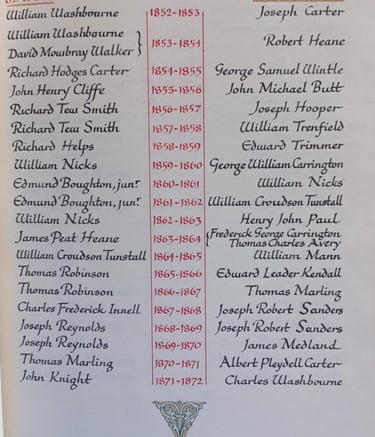 William Washbourne 1852-1853 Joseph Carter
William Washbourne
David Mowbray Walker } 1853-1854 Robert Heane
Richard Hodges Carter 1854-1855 George Samuel Wintle
John Henry Cliffe 1855-1856 John Michael Butt
Richard Tew Smith 1856-1857 Joseph Hooper
Richard Tew Smith 1857-1858 William Trenfield
Richard Helps 1858-1859 Edward Trimmer
William Nicks 1859-1860 George William Carrington
Edmund Boughton, junr. 1860-1861 William Nicks
Edmund Boughton, junr. 1861-1862 William Croudson Tunstall
William Nicks 1862-1863 Henry John Paul
James Peat Heane 1863-1864 { Frederick George Carrington
Thomas Charles Avery
William Croudson Tunstall 1864-1865 William Mann
Thomas Robinson 1865-1866 Edward Leader Kendall
Thomas Robinson 1866-1867 Thomas Marling
Charles Frederick Innell 1867-1868 Joseph Robert Sanders
Joseph Reynolds 1868-1869 Joseph Robert Sanders
Joseph Reynolds 1869-1870 James Medland
Thomas Marling 1870-1871 Albert Pleydell Carter
John Knight 1871-1872 Charles Washbourne